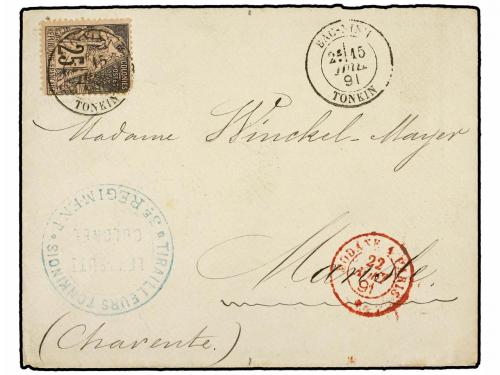 25
TONKIN
BAC-NINH
2E 15
JUIL
91
TONKIN
Madame Winckel-Mayer
TIRAILLEURS TONKINOIS
3e REGIMENT
COLONEL
MODANE A PARIS
22
91
Mansle
(Charente)